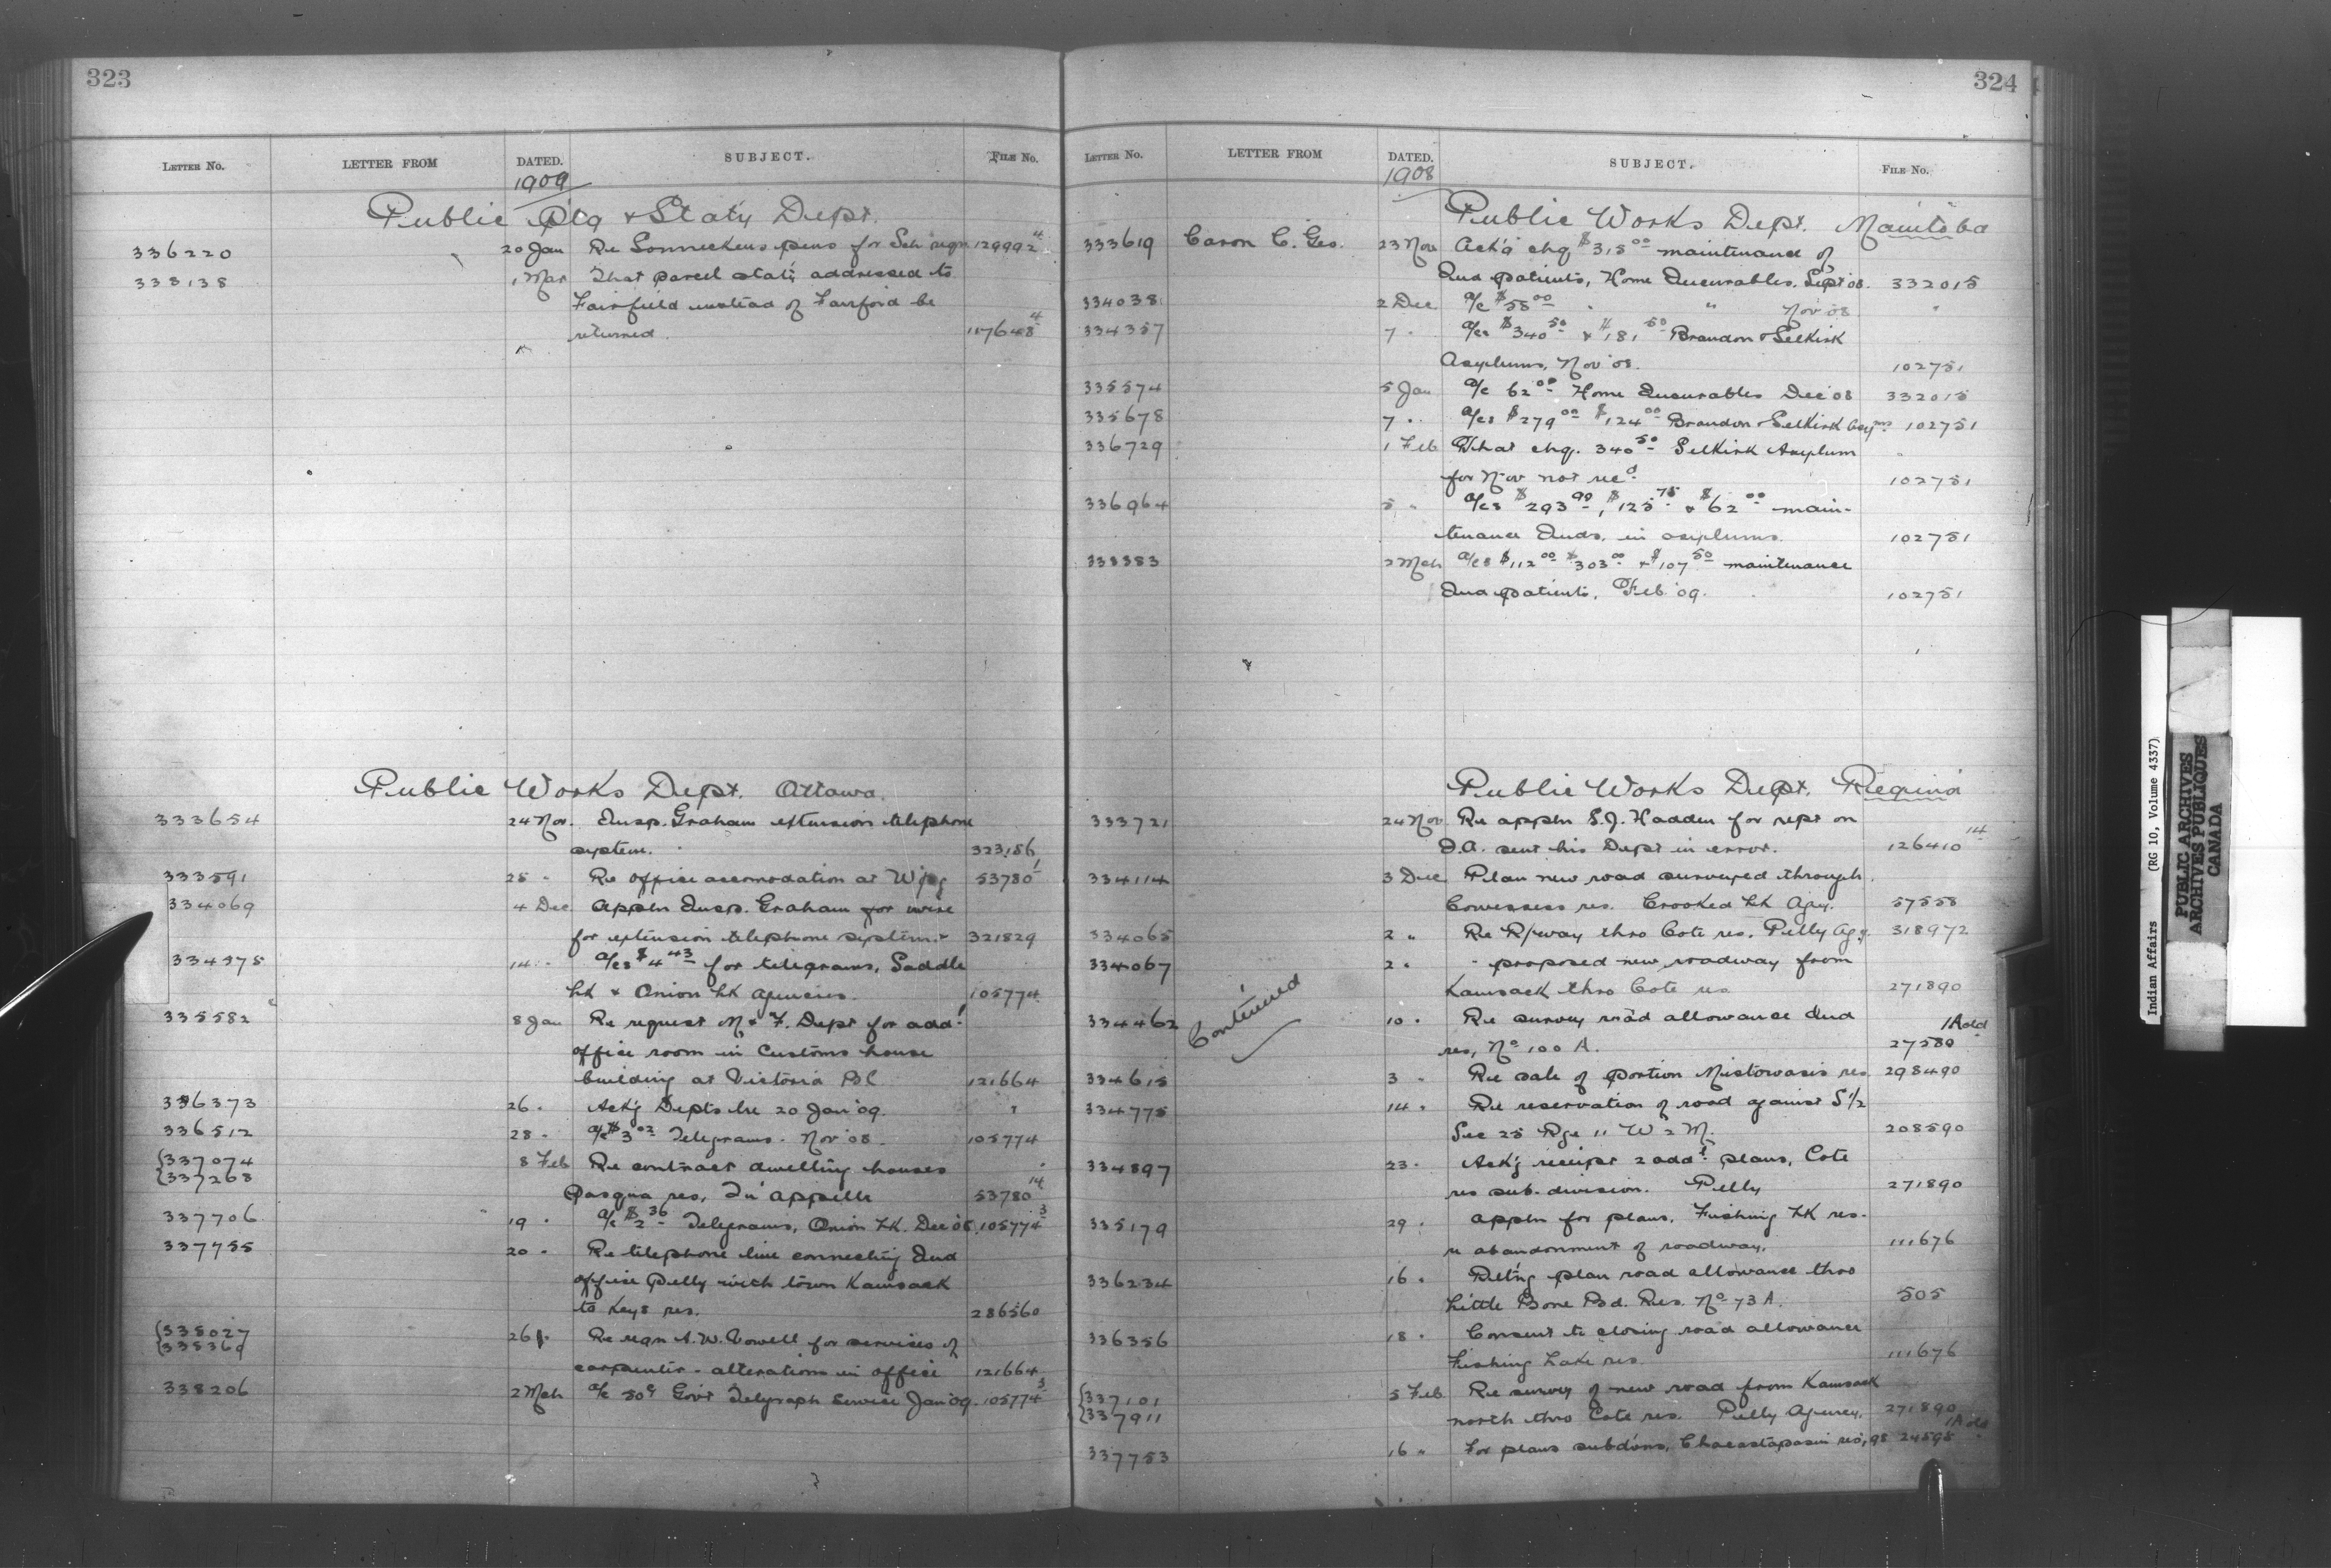 323
LETTER NO. LETTER FROM DATED. SUBJECT. FILE NO.
1909
Public Ptg & Stat'y Dept.
336220 20 Jan Re Sonneckens pens for Sch reqn 129992 4
338138 1 Mar That parcel stat'y addressed to
Fairfield instead of Fairford be
returned 117648 4
Public Works Dept. Ottawa.
333654 24 Nov. Insp. Graham extension telephone
system. 323,186
333591 25 " Re office accomodation at W'peg 53780 1
334069 4 Dec Appln Insp. Graham for wire
for extension telephone system. 321829
334975 14 " a/cs $4 43 for telegrams, Saddle
Lk & Onion Lk agencies. 105774
335582 8 Jan Re request M & F. Dept for add'l
office room in Customs house
building at Victoria BC 121664
336373 26 " Ack'g Depts lre 20 Jan '09. "
336512 28 " a/c $3 02 Telegrams. Nov '08. 105774
{337074 8 Feb Re contract dwelling houses
{337268 Pasqua res, Qu'appelle 53780 14
337706 19 " a/c $2 36 Telegrams, Onion Lk. Dec '08. 105774 3
337755 20 " Re telephone line connecting Ind
office Pelly with town Kamsack
to Keys res. 286560
{338027 26 " Re reqn A. W. Vowell for services of
{338369 carpenter - alterations in office 121664
338206 2 Mch a/c 50¢ Gov't Telegraph Service Jan '09. 105774 3
324
LETTER NO. LETTER FROM DATED. SUBJECT. FILE NO.
1908
Public Works Dept. Manitoba
333619 Caron C. Geo. 23 Nov Ack'g chq $315 00 maintenance of
Ind patients, Home Incurables, Sept '08. 332015
334038 2 Dec a/c $58 00 " " Nov '08 "
334357 7 " a/cs $340 50 & $181 50 Brandon & Selkirk
Asylums, Nov '08. 102751
335574 5 Jan a/c 62 00 Home Incurables Dec '08 332015
335678 7 " a/cs $279 00 $124 00 Brandon & Selkirk Asyms 102751
336729 1 Feb That chq. 340 50 Selkirk Asylum "
for Nov not rec'd 102751
336964 5 " a/cs $293 90, $125 75 & $62 00 main-
tenance Inds. in asylums. 102751
338383 2 Mch a/cs $112 00 $303 00 & $107 50 maintenance
Ind patients, Feb '09. 102751
Public Works Dept. Regina
333721 24 Nov Re appln S. J. Hadden for rept on
D.A. sent his Dept in error. 126410 14
334114 3 Dec Plan new road surveyed through
Cowessess res. Crooked Lk Agcy. 57558
334065 2 " Re R/way thro Cote res. Pelly Agy 318972
334067 2 " " proposed new roadway from
Kamsack thro Cote res 271890
Continued
334462 10 " Re survey road allowance Ind 1 Add
res, No 100 A. 27580
334615 3 " Re sale of portion Mistowasis res 298490
334775 14 " Re reservation of road against S 1/2
Sec 25 Rge 11 W 2 M. 208590
334897 23 " Ack'g receipt 2 add'l plans, Cote
res sub-division. Pelly 271890
335179 29 " Appln for plans, Fishing Lk res.
re abandonment of roadway. 111676
336234 16 " Ret'ng plan road allowance thro
Little Bone Bd. Res. No 73 A. 505
336356 18 " Consent to closing road allowance
Fishing Lake res. 111676
{337101 5 Feb Re survey of new road from Kamsack
{337911 north thro Cote res. Pelly Agency. 271890
1 Add
337753 16 " For plans subd'ons, Chacastapasin res, 98 24598
Indian Affairs (RG 10, Volume 4337)
PUBLIC ARCHIVES
ARCHIVES PUBLIQUES
CANADA